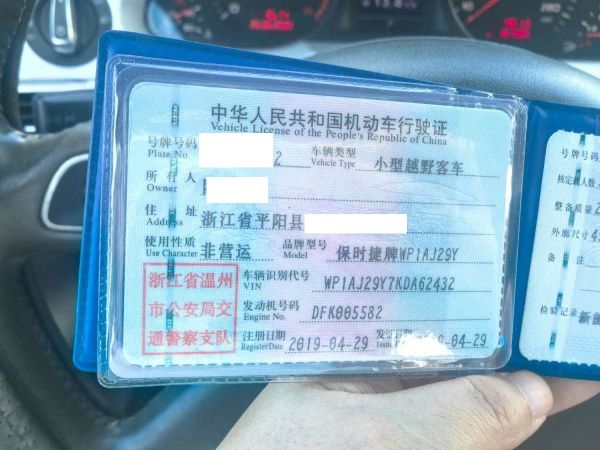 中华人民共和国机动车行驶证
Vehicle License of the People's Republic of China
号牌号码 2 车辆类型 小型越野客车
Plate No. Vehicle Type
所有人
Owner
住址 浙江省平阳县
Address
使用性质 非营运 品牌型号 保时捷牌WP1AJ29Y
Use Character Model
浙江省温州
市公安局交
通警察支队
车辆识别代号 WP1AJ29Y7KDA62432
VIN
发动机号码 DFK005582
Engine No.
注册日期 2019-04-29 发证日期 2019-04-29
RegisterDate Issu
号牌号码
核定载人数
整备质量 2
外廓尺寸 4
备注
检验记录